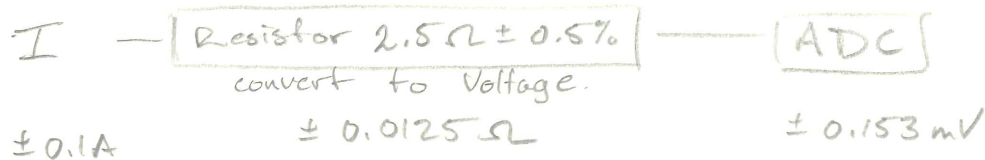 I — Resistor 2.5Ω ± 0.5% — ADC
convert to Voltage.
± 0.1A ± 0.0125 Ω ± 0.153 mV